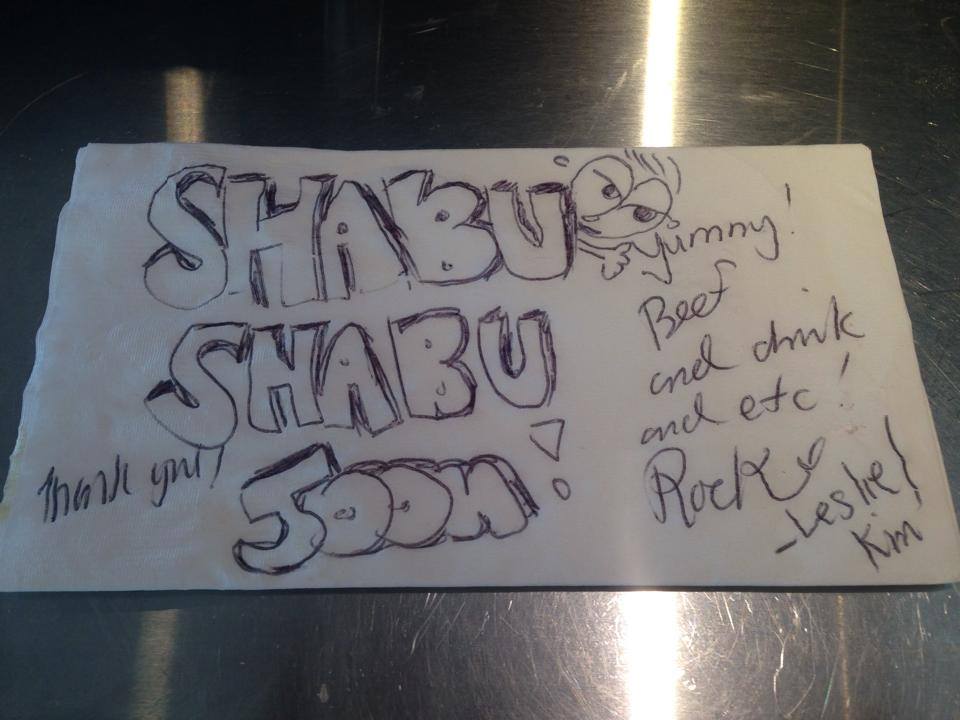 SHABU
SHABU
JOON!
Thank you!
yummy!
Beef
and drink
and etc!
Rock
- Leslie!
Kim